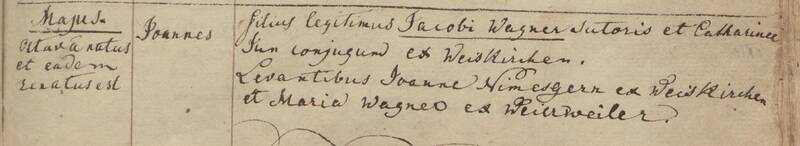 Majus.
octava natus
et eadem
renatus est
Joannes
filius legitimus Jacobi Wagner sutoris et Catharinae
Jun conjugum ex Weiskirchen.
Levantibus Joanne Nimesgern ex Weiskirchen
et Maria Wagner ex Weierweiler.